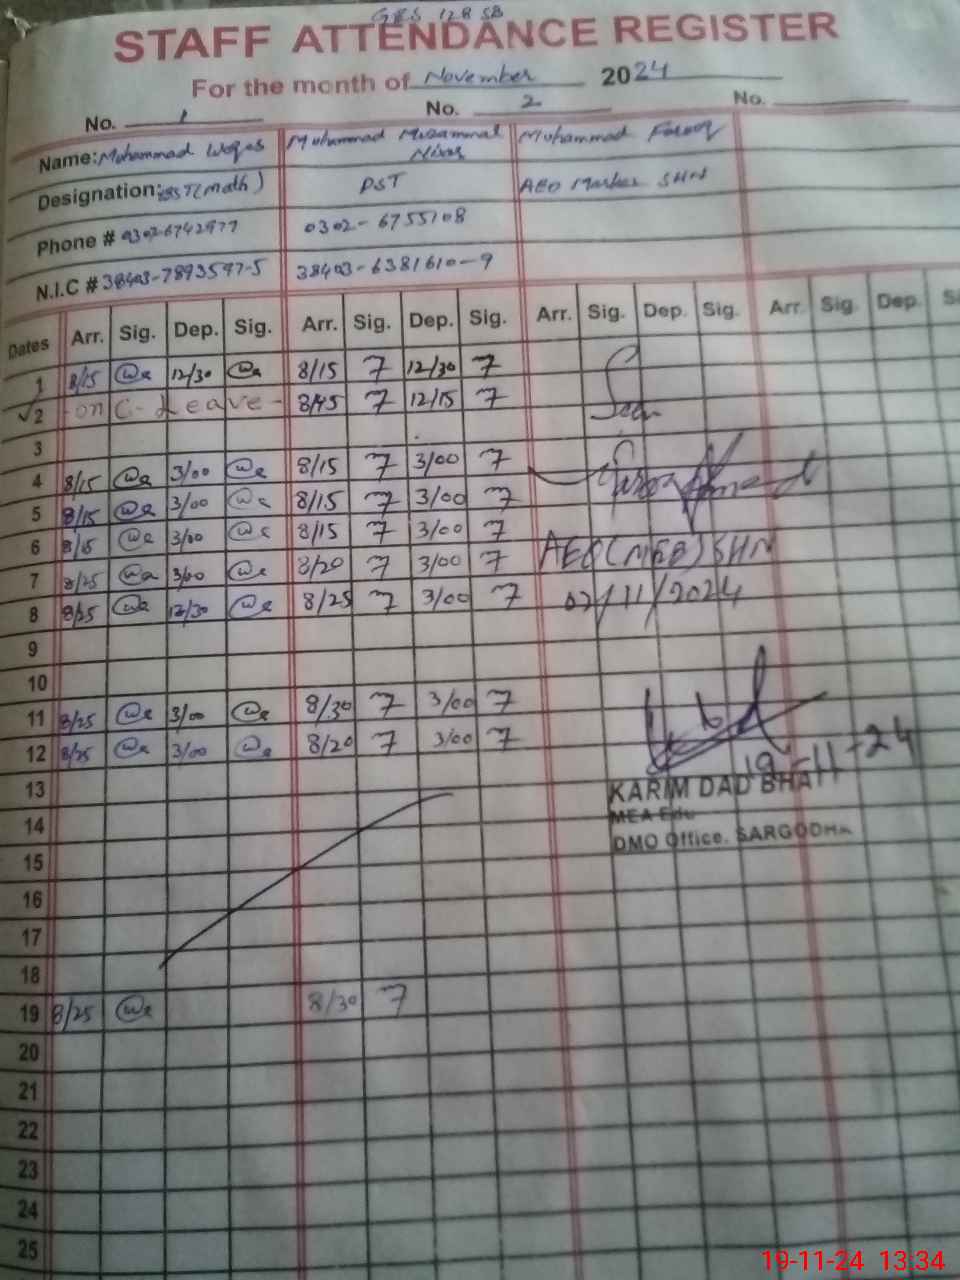 GES 128 SB
STAFF ATTENDANCE REGISTER
For the month of November 2024
No. 1 No. 2 No.
Name: Muhammad Waqas Muhammad Muzammal Nisar Muhammad Farooq
Designation: (Math) PST AEO Markaz SHN
Phone # 0302-6742977 0302-6755108
N.I.C # 38403-7893597-5 38403-6381610-9
Dates Arr. Sig. Dep. Sig. Arr. Sig. Dep. Sig. Arr. Sig. Dep. Sig. Arr. Sig. Dep. Si
1 8/15 12/30 8/15 12/30
2 - on C- Leave - 8/45 12/15
3
4 8/15 3/00 8/15 3/00
5 8/15 3/00 8/15 3/00
6 8/15 3/00 8/15 3/00 AEO (M-EE) SHN
7 8/25 3/00 8/20 3/00
8 8/25 12/30 8/25 3/00 02/11/2024
9
10
11 8/25 3/00 8/30 3/00
12 8/25 3/00 8/20 3/00 19-11-24
13 KARIM DAD BHATTI
14 MEA Edu
DMO Office, SARGODHA
15
16
17
18
19 8/25 8/30
20
21
22
23
24
25
19-11-24 13:34